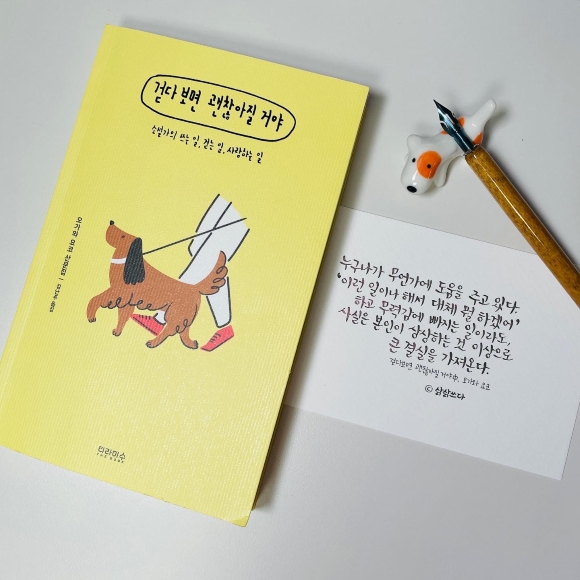 걷다 보면 괜찮아질 거야
소설가의 쓰는 일, 걷는 일, 사랑하는 일
오가와 요코 산문집
티라미수
THE BOOK
누구나가 무언가에 도움을 주고 있다.
'이런 일이나 해서 대체 뭘 하겠어'
하고 무력감에 빠지는 일이라도,
사실은 본인이 상상하는 것 이상으로
큰 결실을 가져온다.
걷다보면 괜찮아질 거야中, 오가와 요코
ⓒ 삶삶쓰다